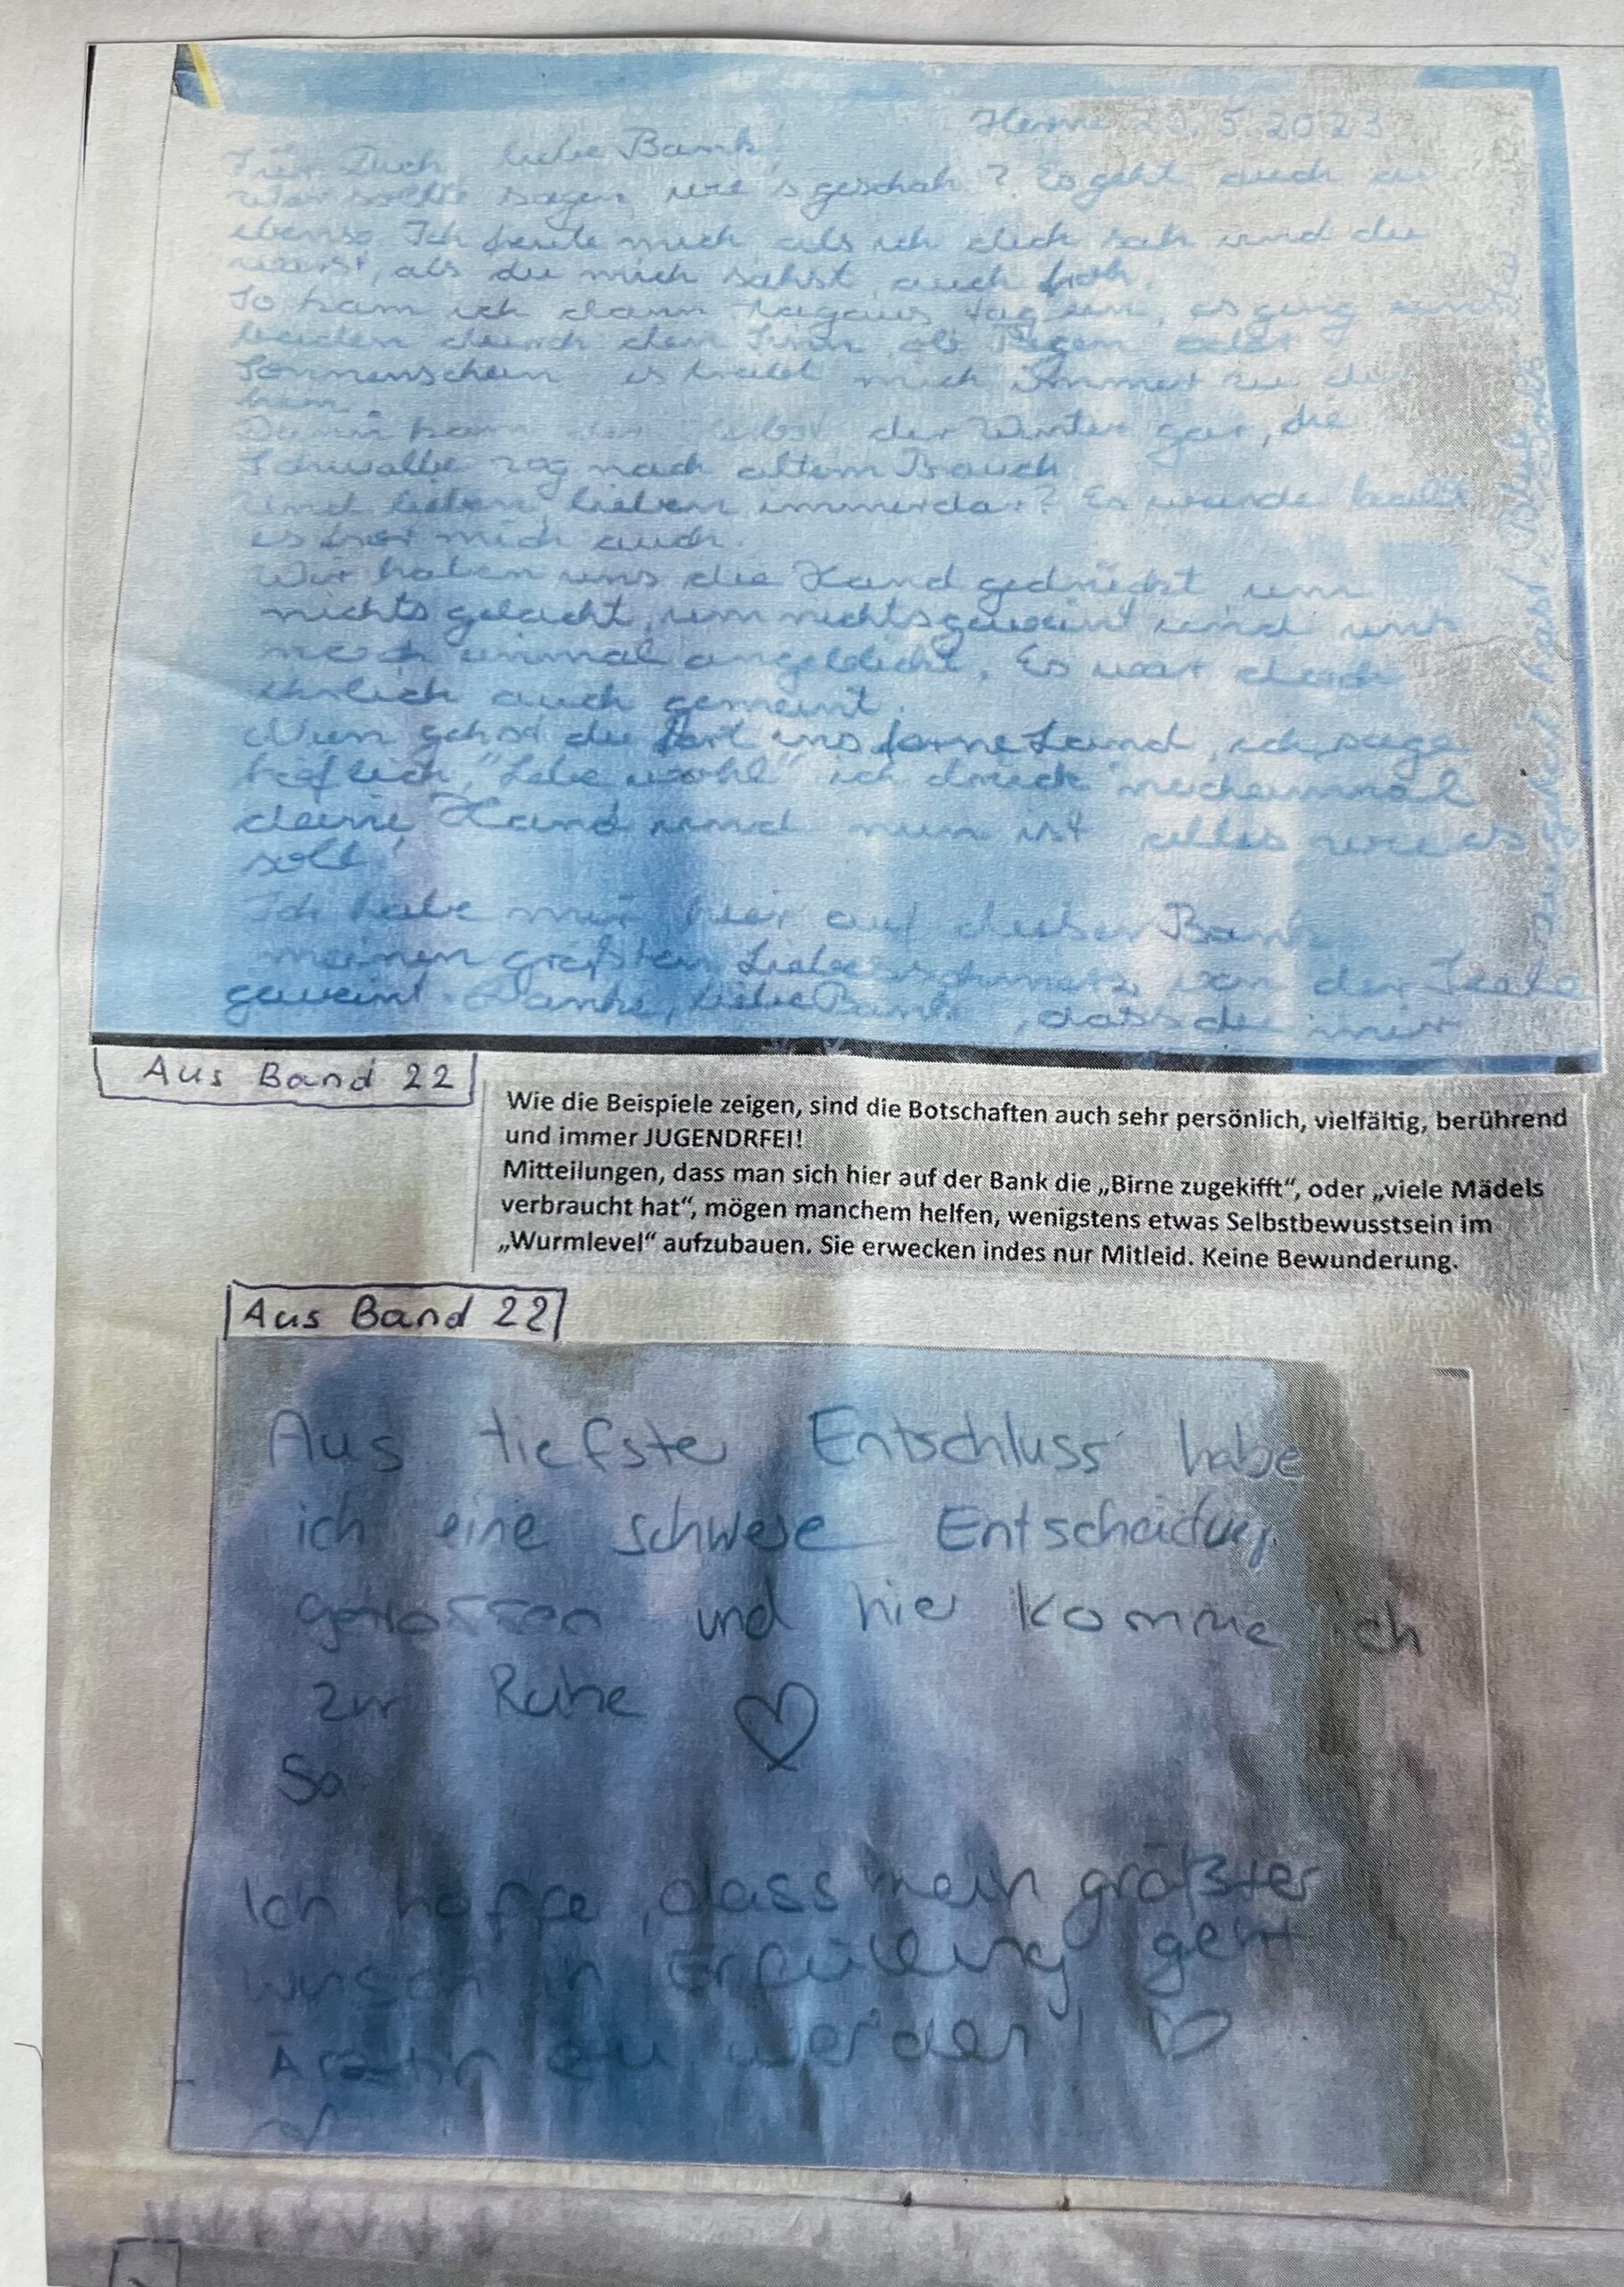 Herne 29.5.2023
Für Dich liebe Bank!
wer sollte sagen, wie's geschah? Es geht auch
ebenso. Ich freute mich als ich dich sah und du
warst, als du mich sahst, auch froh.
So kam ich dann tagaus tagein, es ging uns
beiden durch den Sinn, ob Regen oder
Sonnenschein es treibt mich immer zu dir
hin.
Dann kam der der Winter gar, die
Schwalbe zog nach altem Brauch
und lieben, lieben immerdar? Es wurde kalt
es fror mich auch.
Wir haben uns die Hand gedrückt, um
nichts gelacht, um nichts geweint und uns
noch einmal angeblickt. Es war doch
ehrlich auch gemeint.
Nun gehst du fort ins ferne Land, ich sage
höflich, "Lebe wohl" ich drück nocheinmal
deine Hand und nun ist alles wie es
soll!
Ich habe mir hier auf dieser Bank
meinen größten Liebesschmerz von der Seele
geweint. Danke, liebe Bank, dass du mir
zugehört hast!
Aus Band 22
Wie die Beispiele zeigen, sind die Botschaften auch sehr persönlich, vielfältig, berührend
und immer JUGENDRFEI!
Mitteilungen, dass man sich hier auf der Bank die „Birne zugekifft“, oder „viele Mädels
verbraucht hat“, mögen manchem helfen, wenigstens etwas Selbstbewusstsein im
„Wurmlevel“ aufzubauen. Sie erwecken indes nur Mitleid. Keine Bewunderung.
Aus Band 22
Aus tiefster Entschluss habe
ich eine schwere Entscheidung
getroffen und hier komme ich
zur Ruhe ♡
So
Ich hoffe, dass mein größter
wunsch in Erfüllung geht
Ärztin zu werden! ♡